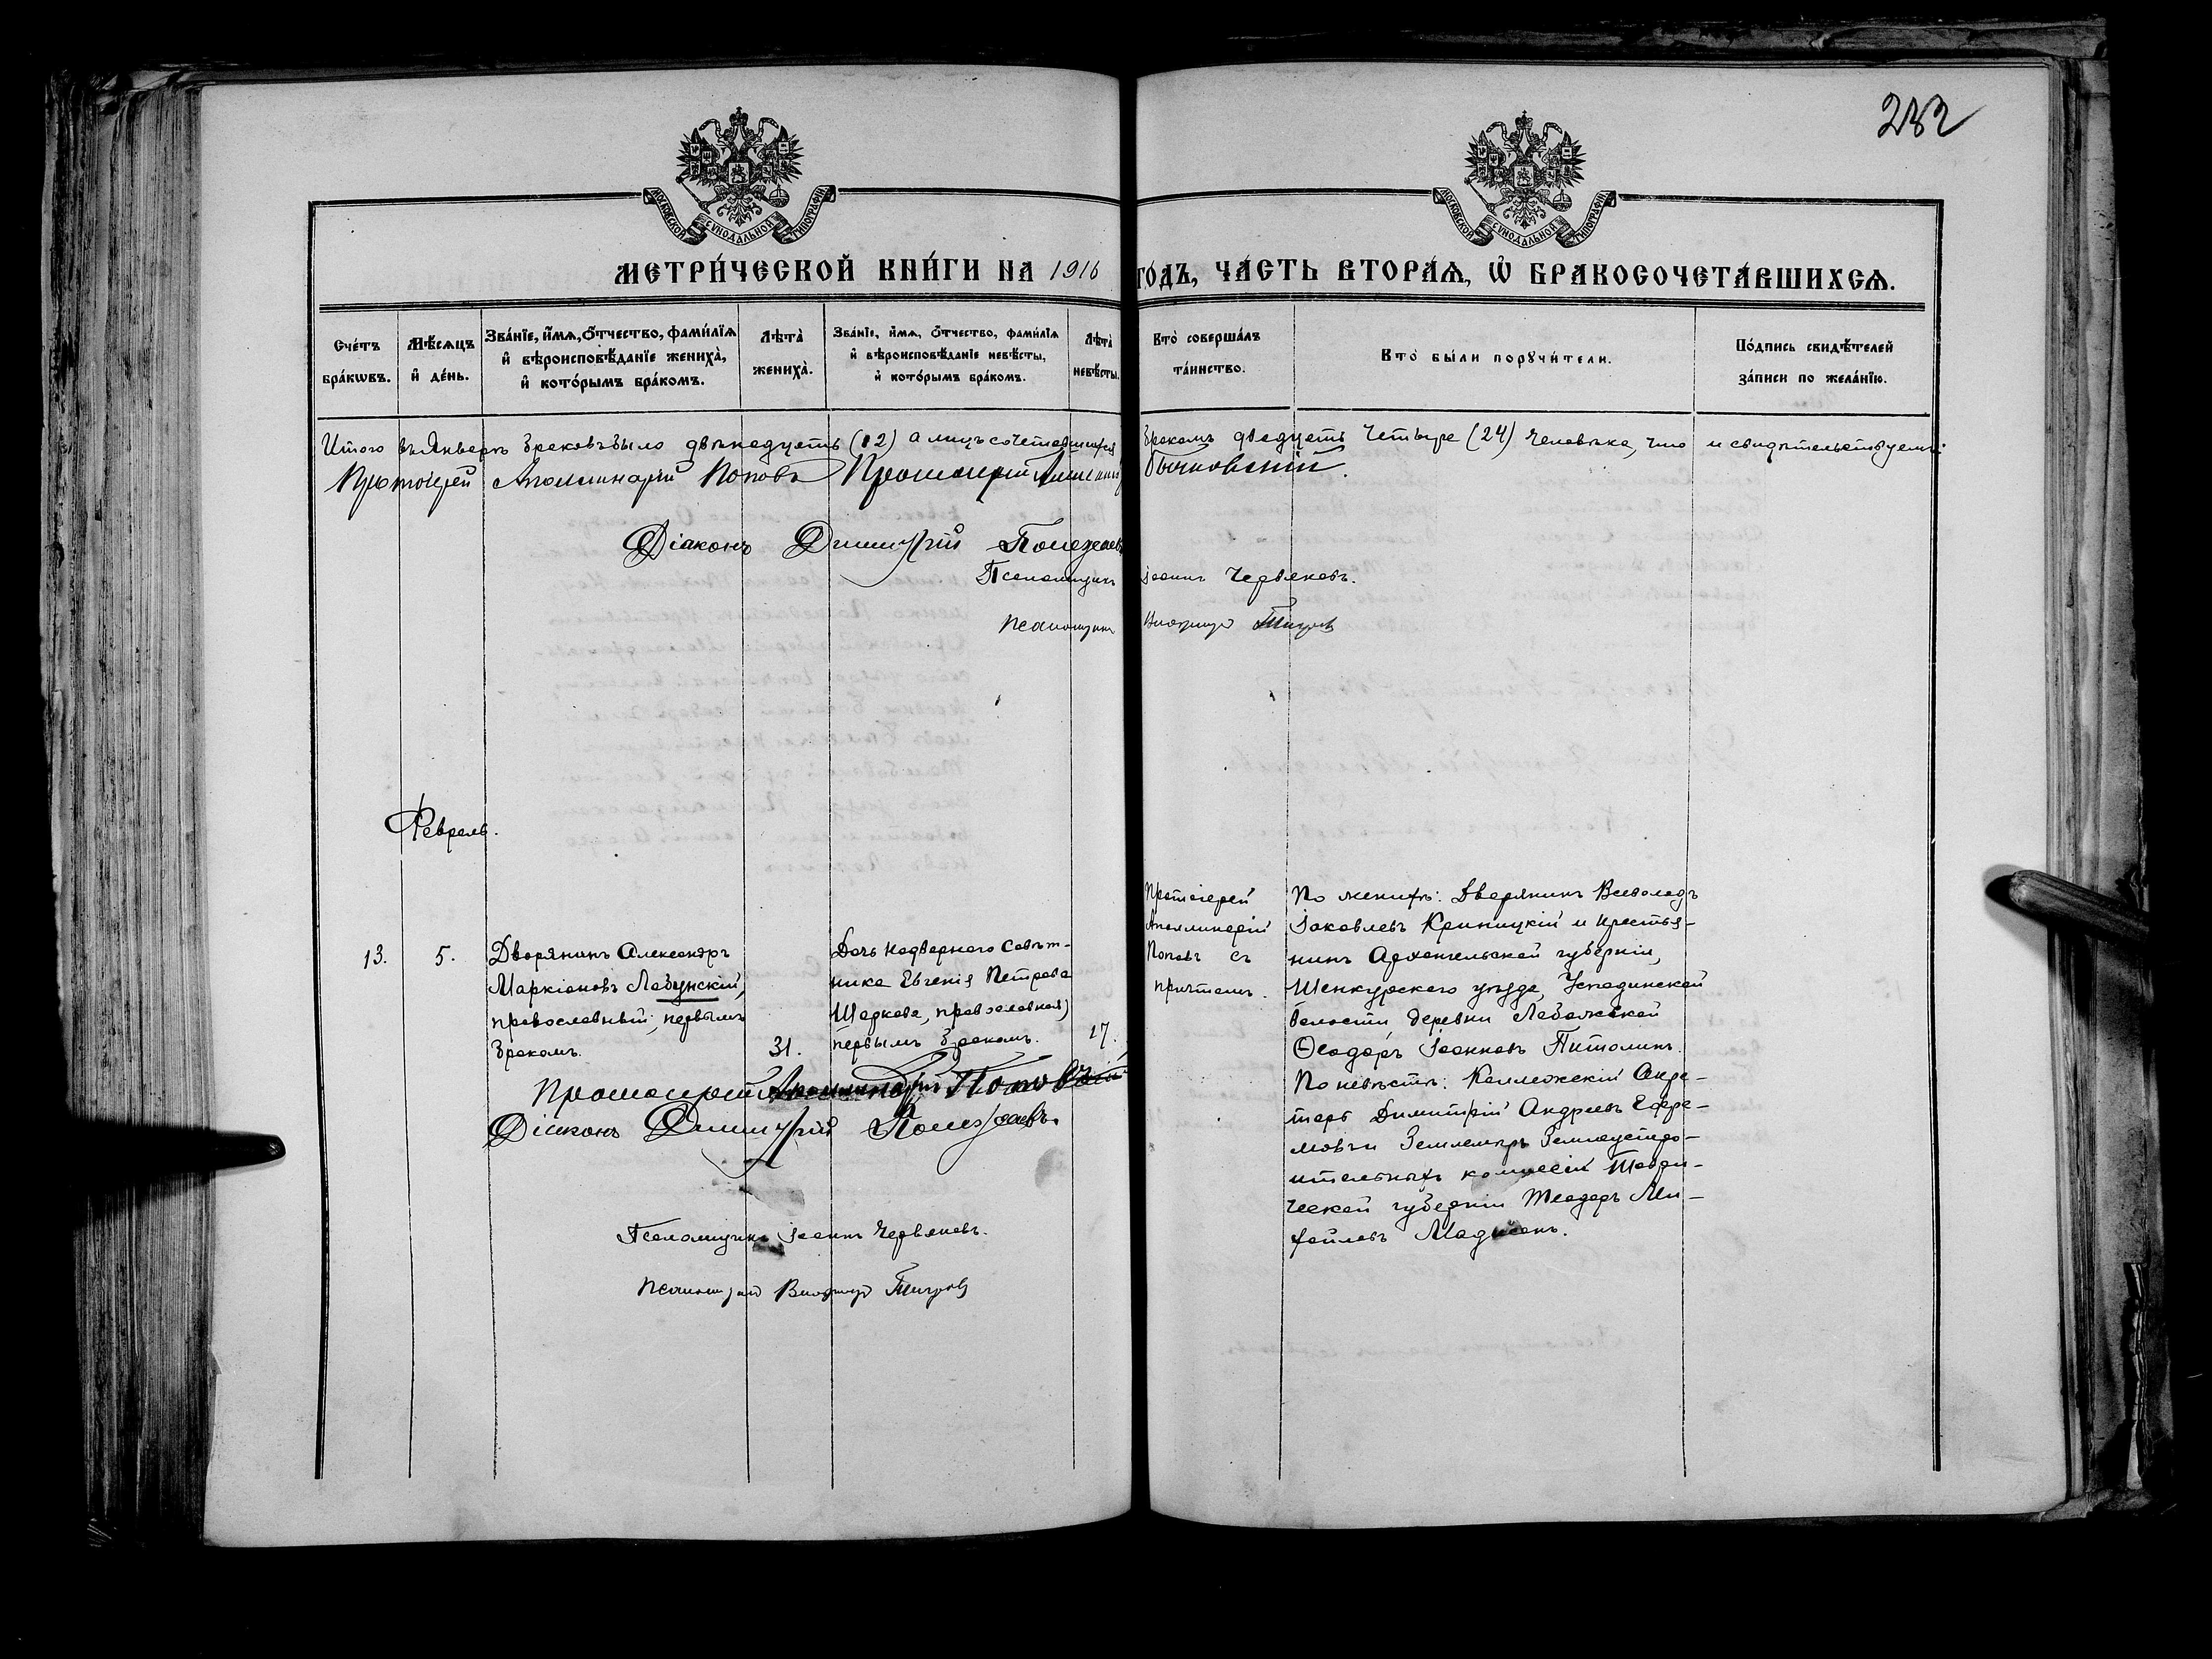 282
МОСКОВСКОЙ СУНОДАЛЬНОЙ ТИПОГРАФІИ
МОСКОВСКОЙ СУНОДАЛЬНОЙ ТИПОГРАФІИ
МЕТРИ́ЧЕСКОЙ КНИ́ГИ НА 1916 ГО́ДЪ, ЧА́СТЬ ВТОРА́Ѧ, Ѡ҆ БРАКОСОЧЕТА́ВШИХСѦ.
Сче́тъ бра́кѡвъ.
Мѣ́сѧцъ и҆ де́нь.
Зва́нїе, и҆́мѧ, ѻ҆́тчество, фами́лїѧ и҆ вѣроисповѣ́данїе жениха̀, и҆ кото́рымъ бра́комъ.
Лѣта̀ жениха̀.
Зва́нїе, и҆́мѧ, ѻ҆́тчество, фами́лїѧ и҆ вѣроисповѣ́данїе невѣ́сты, и҆ кото́рымъ бра́комъ.
Лѣта̀ невѣ́сты.
Кто̀ соверша́лъ та́инство.
Кто̀ бы́ли порꙋчи́тели.
По́дпись свидѣ́телей за́писи по жела́нїю.
Итого въ Январѣ браковъ было двѣнадцать (12) а лицъ сочетавшихся бракомъ двадцать четыре (24) человѣка, что и свидѣтельствуемъ:
Протоіерей Аполлинарій Поповъ Протоіерей Бычковскій.
Діаконъ Димитрій Помезаевъ
Псаломщикъ Іоаннъ Червяковъ.
Псаломщикъ
Февраль.
13.
5.
Дворянинъ Александръ
Маркіановъ Лабунскій,
православный, первымъ
бракомъ.
31.
Дочь Надворнаго Совѣт-
ника Евгенія Петрова
Шаркова, православная,
первымъ бракомъ.
17.
Протоіерей
Аполлинарій
Поповъ съ
причтомъ.
По женихѣ: Дворянинъ Всеволодъ
Іаковлевъ Криницкій и крестья-
нинъ Архангельской губерніи,
Шенкурскаго уѣзда, Устпадинской
волости, деревни Лабажской
Ѳеодоръ Іоанновъ Питолинъ.
По невѣстѣ: Коллежскій Аке-
торъ Димитрій Андреевъ Ефре-
мовъ и Землемѣръ Землеустро-
ительныхъ комиссій Таври-
ческой губерніи Теодоръ Ми-
хайловъ Мадисонъ.
Протоіерей Аполлинарій Поповъ
Діаконъ Димитрій Помезаевъ.
Псаломщикъ Іоаннъ Червяковъ.
Псаломщикъ